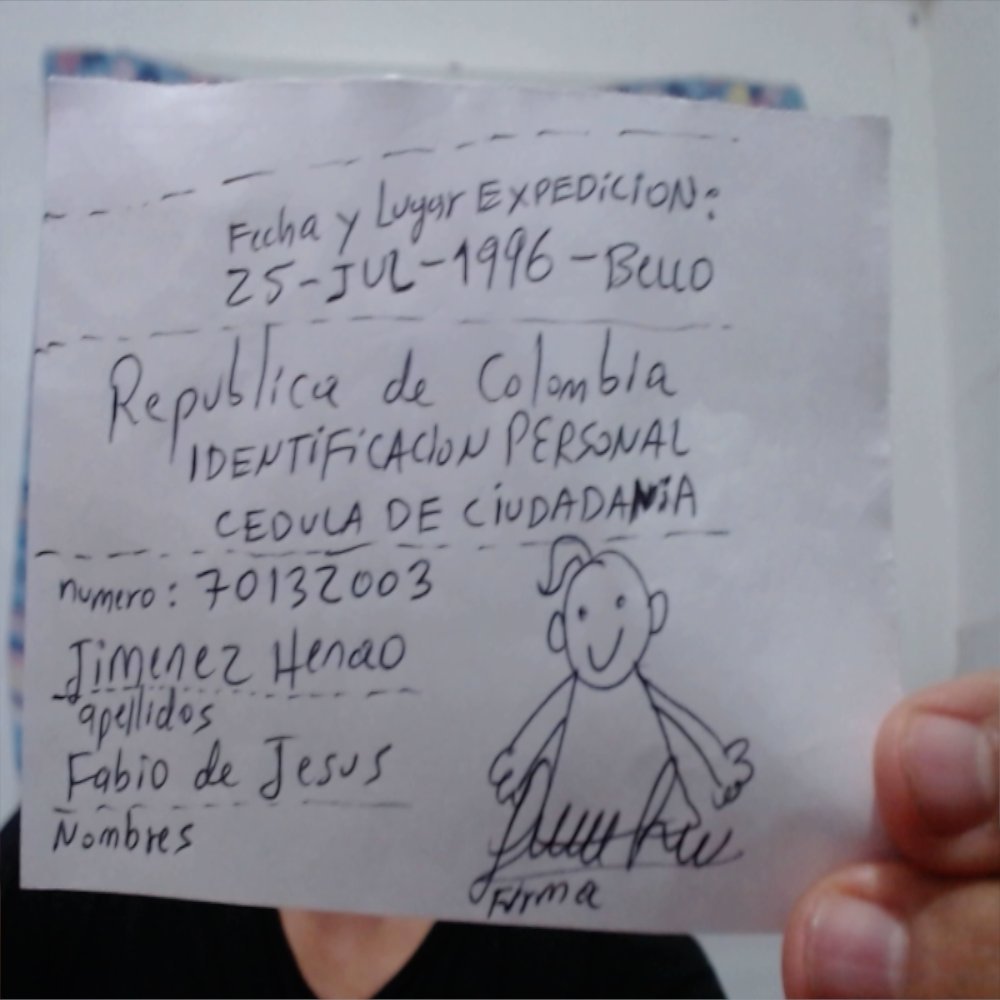 Fecha y Lugar EXPEDICION:
25-JUL-1996-Bello
Republica de Colombia
IDENTIFICACION PERSONAL
CEDULA DE CIUDADANIA
numero: 70132003
Jimenez Henao
apellidos
Fabio de Jesus
Nombres
Firma